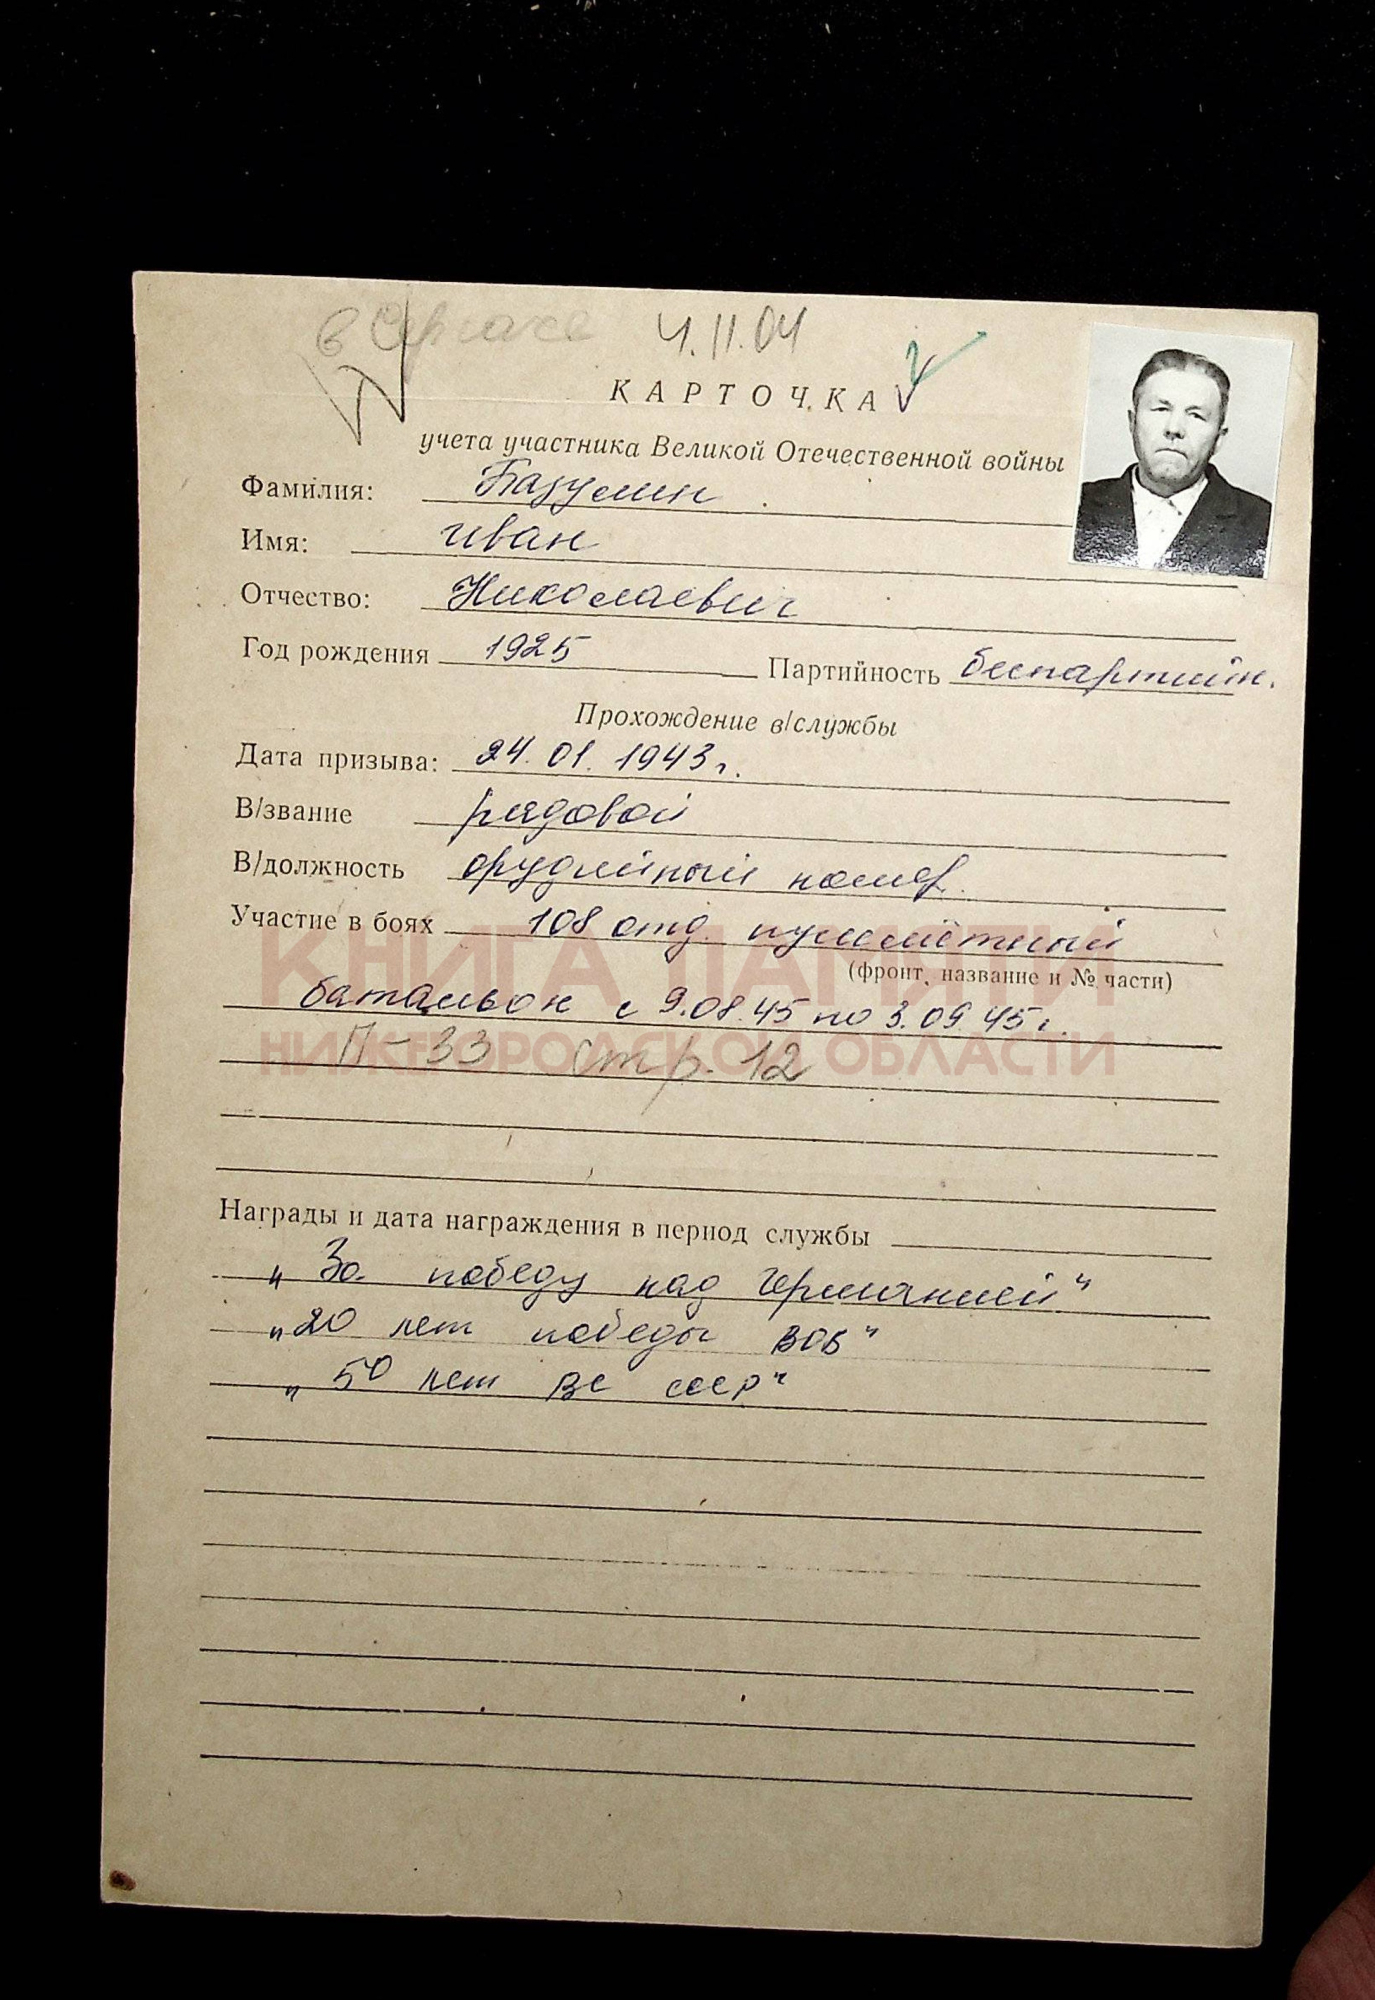 в Сергаче 4.11.04
КАРТОЧКА
учета участника Великой Отечественной войны
Фамилия: Базулин
Имя: Иван
Отчество: Николаевич
Год рождения 1925 Партийность беспартийн.
Прохождение в/службы
Дата призыва: 24.01.1943г.
В/звание рядовой
В/должность орудийный номер
Участие в боях 108 отд. пулемётный
(фронт, название и № части)
батальон с 9.08.45 по 3.09.45г.
П-33 стр. 12
КНИГА ПАМЯТИ
НИЖЕГОРОДСКОЙ ОБЛАСТИ
Награды и дата награждения в период службы
„За победу над Германией“
„20 лет победы ВОВ“
„50 лет ВС СССР“